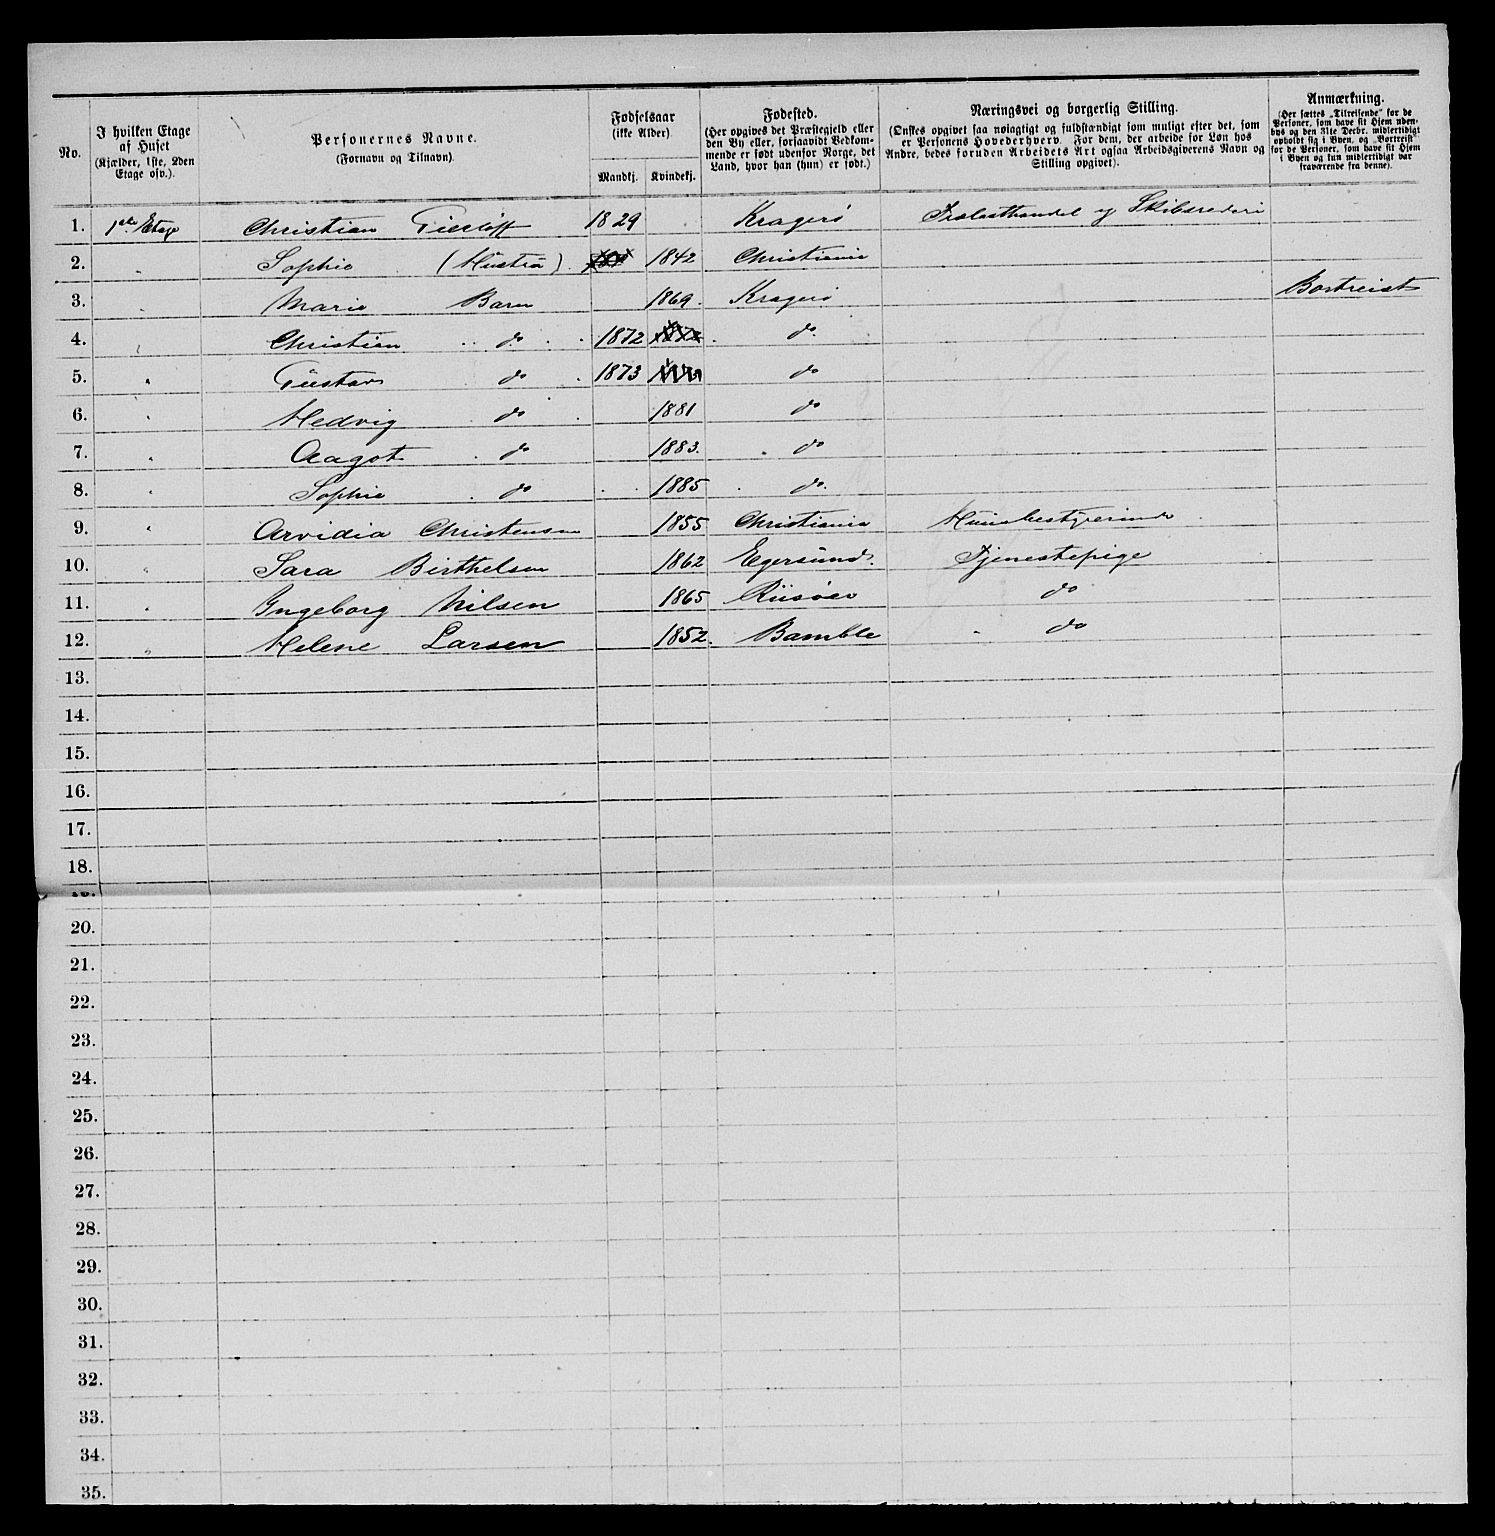 No. | I hvilken Etage af Huset (Kjælder, 1ste, 2den Etage osv.). | Personernes Navne. (Fornavn og Tilnavn) | Fødselsaar (ikke Alder). Mandkj. | Kvindekj. | Fødested. (Her opgives det Præstegjeld eller den By eller, forsaavidt Vedkommende er født udenfor Norge, det Land, hvor han (hun) er født.) | Næringsvei og borgerlig Stilling. (Ønskes opgivet saa nøiagtigt og fuldstændigt som muligt efter det, som er Personens Hovederhverv. For dem, der arbeide for Løn hos Andre, bedes foruden Arbeidets Art ogsaa Arbeidsgiverens Navn og Stilling opgivet). | Anmærkning. (Her sættes „Tilreisende“ for de Personer, som have sit Hjem udenbys og den 31te Decbr. midlertidigt opholdt sig i Byen, og „Bortreist“ for de Personer, som have sit Hjem i Byen og kun midlertidigt var fraværende fra denne).
1. 1ste Etage Christian Tierløff 1829 Kragerø Trælasthandel og Skibsrederi
2. " Sophie (Hustru) 1842 Christiania
3. " Marie Barn 1869. Kragerø Bortreist
4. " Christian do 1872 do
5. " Gustav do 1873 do
6. " Hedvig do 1881 do
7. " Aagot do 1883. do
8. " Sophie do 1885 do
9. " Arvidia Christensen 1855 Christiania Huusbestyrerinde
10. " Sara Birthelsen 1862 Egersund. Tjenestepige
11. " Ingeborg Nilsen 1865 Riisøer do
12. " Helene Larsen 1852. Bamble do
13.
14.
15.
16.
17.
18.
20.
21.
22.
23.
24.
25.
26.
27.
28.
29.
30.
31.
32.
33.
34.
35.